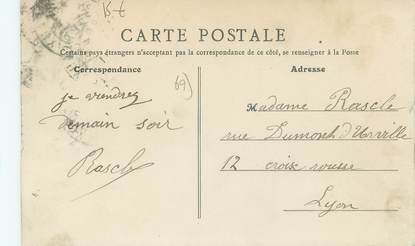 15 €
CARTE POSTALE
Certains pays étrangers n'acceptant pas la correspondance de ce côté, se renseigner à la Poste
Correspondance
Adresse
69)
je viendrez
demain soir
Rascle
Madame Rascle
rue Dumont d'Urville
12 croix rousse
Lyon